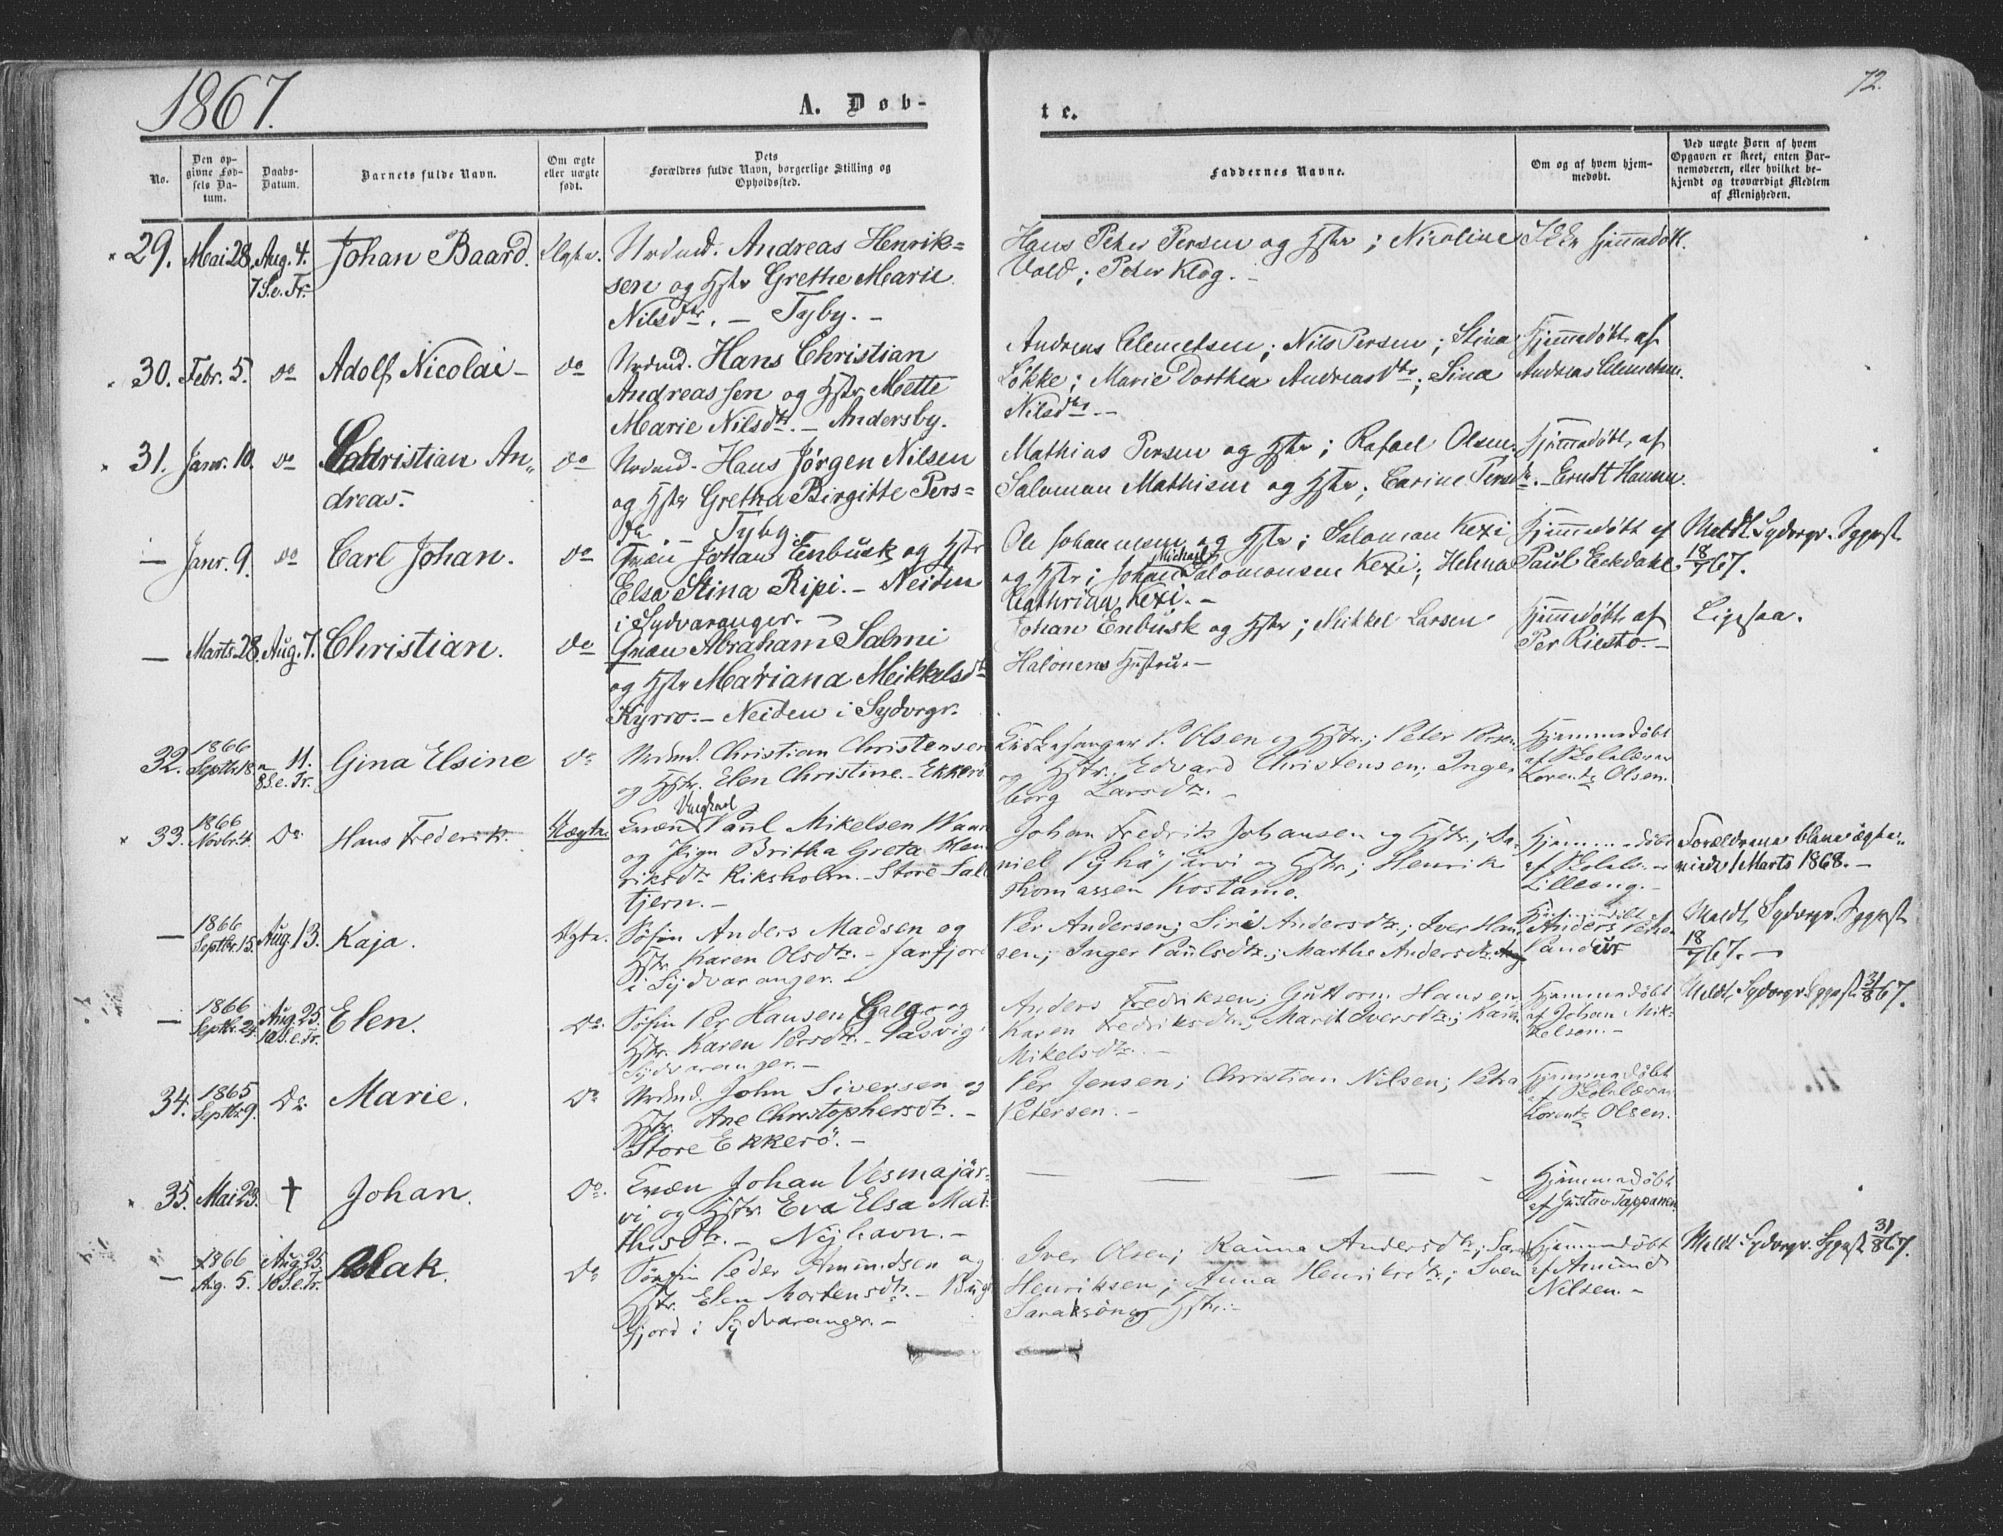 1867.
A. Døb-
te.
72.
No.
Den op-
givne Fød-
sels Da-
tum.
Daabs-
Datum.
Barnets fulde Navn.
Om ægte
eller uægte
født.
Dets
Forældres fulde Navn, borgerlige Stilling og
Opholdssted.
Faddernes Navne.
Om og af hvem hjem-
medøbt.
Ved uægte Børn af hvem
Opgaven er skeet, enten Bar-
nemoderen, eller hvilket be-
kjendt og troværdigt Medlem
af Menigheden.
29. Mai 28. Aug. 4. Johan Baard. Ægte. Nrdmd. Andreas Henrik=
7 S. e. Tr. sen og Hstr Grethe Marie
Nilsdtr. - Tyby. -
Hans Peter Persen og Hstr; Nicoline
Vold; Peter Klog. -
Ikke hjemmedøbt.
30. Febr. 5. do Adolf Nicolai - do Nrdmd. Hans Christian
Andreassen og Hstr Mette
Marie Nilsdtr. - Andersby.
Andreas Clemetsen; Nils Persen; Stina
Løkke; Marie Dorthea Andreasdtr; Sina
Nilsdtr. -
Hjemmedøbt af
Andreas Clemetsen.
31. Janr. 10. do Christian An-
dreas - do Nrdmd. Hans Jørgen Nilsen
og Hstr Gretha Birgitte Pers=
dtr. - Tyby.
Mathias Persen og Hstr; Rafael Olsen.
Salomon Mathisen og Hstr; Carine Persdtr. -
Hjemmedøbt af
Erndt Hansen.
— Janr. 9. do Carl Johan. do Qvæn Johan Enbusk og Hstr
Elsa Stina Ripi. - Neiden
i Sydvaranger. -
Ole Johannesen og Hstr; Salomon Kexi
og Hstr; Johan Michael Salomonsen Kexi; Helena
Cathrina Kexi. -
Hjemmedøbt af
Paul Eckdahl.
Meldt Sydvrgr. Sgprst
18/7 67.
— Marts 28. Aug. 7. Christian. do Qvæn Abraham Salmi
og Hstr Mariana Meikkelsdtr
Kyrro. - Neiden i Sydvrgr.
Johan Enbusk og Hstr; Mikkel Larsen
Halonens Hustru. -
Hjemmedøbt af
Per Riesto. -
Ligesaa.
32. 1866 Septbr. 18. 11. Gina Elsine Do Nrdmd. Christian Christensen
8 S. e. Tr. og Hstr. Elen Christine - Ekkerö.
Kirkesanger P. Olsen og Hstr.; Peter Persen
og Hstr.; Edvard Christensen; Inge-
borg Larsdtr. -
Hjemmedøbt
af Skolelærer
Lorentz Olsen.
33. 1866 Novbr. 4. Do. Hans Frederik. Uægte. Kvæn Ungkarl Paul Mikelsen Wan
og Pigen Britha Greta Hen-
riksdtr. Riksholm. - Store Salt-
tjern. -
Johan Fredrik Johansen og Hstr.; Da-
niel Pyhäjärvi og Hstr.; Henrik
Thomassen Kostamo.
Hjemmedøbt
af Skolel.
Lilleeng. -
Forældrene bleve ægte-
viede 1 Marts 1868. -
— 1866 Septbr. 15. Aug. 13. Kaja. Ægte. Søfin Anders Madsen og
Hstr. Karen Olsdtr. - Jarfjord
i Sydvaranger. -
Per Andersen; Siri Andersdtr.; Iver Han-
sen; Inger Paulsdtr.; Marthe Andersdtr.
Hjemmedøbt
Anders Peder
Pandur
Meldt Sydvrgr. Sgprst
18/7 67. -
— 1866 Septbr. 24. Aug. 25. Elen. Do. Søfin Per Hansen Galgo og
10 S. e. Tr. Hstr. Karen Persdtr. - Pasvig i
Sydvaranger. -
Anders Fredriksen; Guttorm Hansen;
Karen Fredriksdtr.; Marit Iversdtr.; Karen
Mikelsdtr. -
Hjemmedøbt
af Johan Mik-
kelsen. -
Meldt Sydvrgr. Sgprst 31/8 67.
34. 1865 Septbr. 9. Do. Marie. Do Nrdmd. John Siversen og
Hstr. Ane Christophersdtr. -
Store Ekkerö. -
Per Jensen; Christian Nilsen; Petra
Petersen. -
Hjemmedøbt
af Skolelærer
Lorentz Olsen.
35. Mai 23. † Johan. Do. Kvæn Johan Vesmajär-
vi og Hstr. Eva Elsa Mat-
thisdtr. - Nyhavn. -
Hjemmedøbt
af Gustav Tappanen
— 1866 Aug. 5. Aug. 25. Aslak. Do Søfin Peder Amundsen og
10 S. e. Tr. Hstr. Elen Mortensdtr. - Bug-
fjord i Sydvaranger. -
Iver Olsen; Rauna Andersdtr.; Sara
Henriksen; Anna Henriksdtr.; Sven
Saraksen og Hstr. -
Hjemmedøbt
af Amund
Nilsen. -
Meldt Sydvrgr. Sgprst 31/8 67.